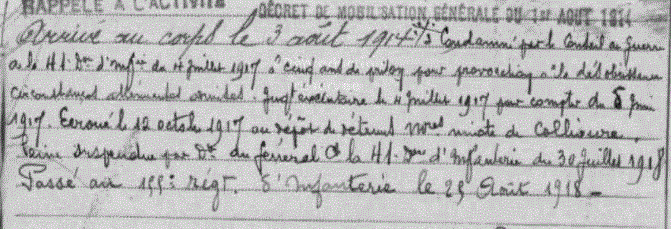 RAPPELÉ A L'ACTIVITÉ DÉCRET DE MOBILISATION GÉNÉRALE DU 1er AOUT 1914
Arrivé au corps le 3 août 1914. Condamné par le Conseil de Guerre
de la 41e Don d'Infie du 4 Juillet 1917 à cinq ans de prison pour provocation à la désobéissance
circonstances atténuantes admises. Jugt exécutoire le 4 Juillet 1917 pour compter du 8 Juin
1917. Ecroué le 12 octobre 1917 au dépôt de détenus de Collioure.
Peine suspendue par Don du Général Ct la 41e Don d'Infanterie du 30 Juillet 1918
Passé au 155e régt. d'Infanterie le 25 Août 1918 -